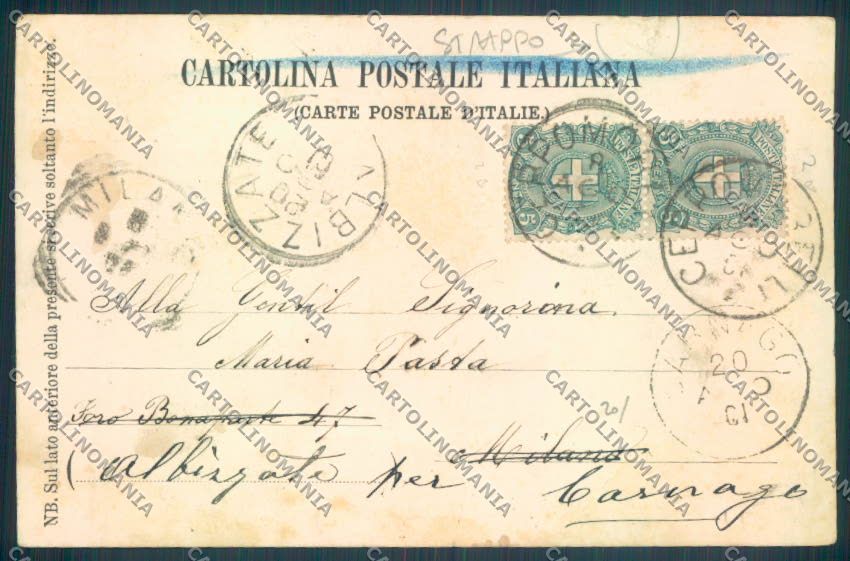 STRAPPO
CARTOLINA POSTALE ITALIANA
(CARTE POSTALE D'ITALIE.)
NB. Sul lato anteriore della presente si scrive soltanto l'indirizzo.
MILANO
ALBIZZATE
POSTE ITALIANE
CARNAGO
20
01
Alla Gentil Signorina
Maria Pasta
Foro Bonaparte 47
Milano
(Albizzate per
Carnago
CARTOLINOMANIA